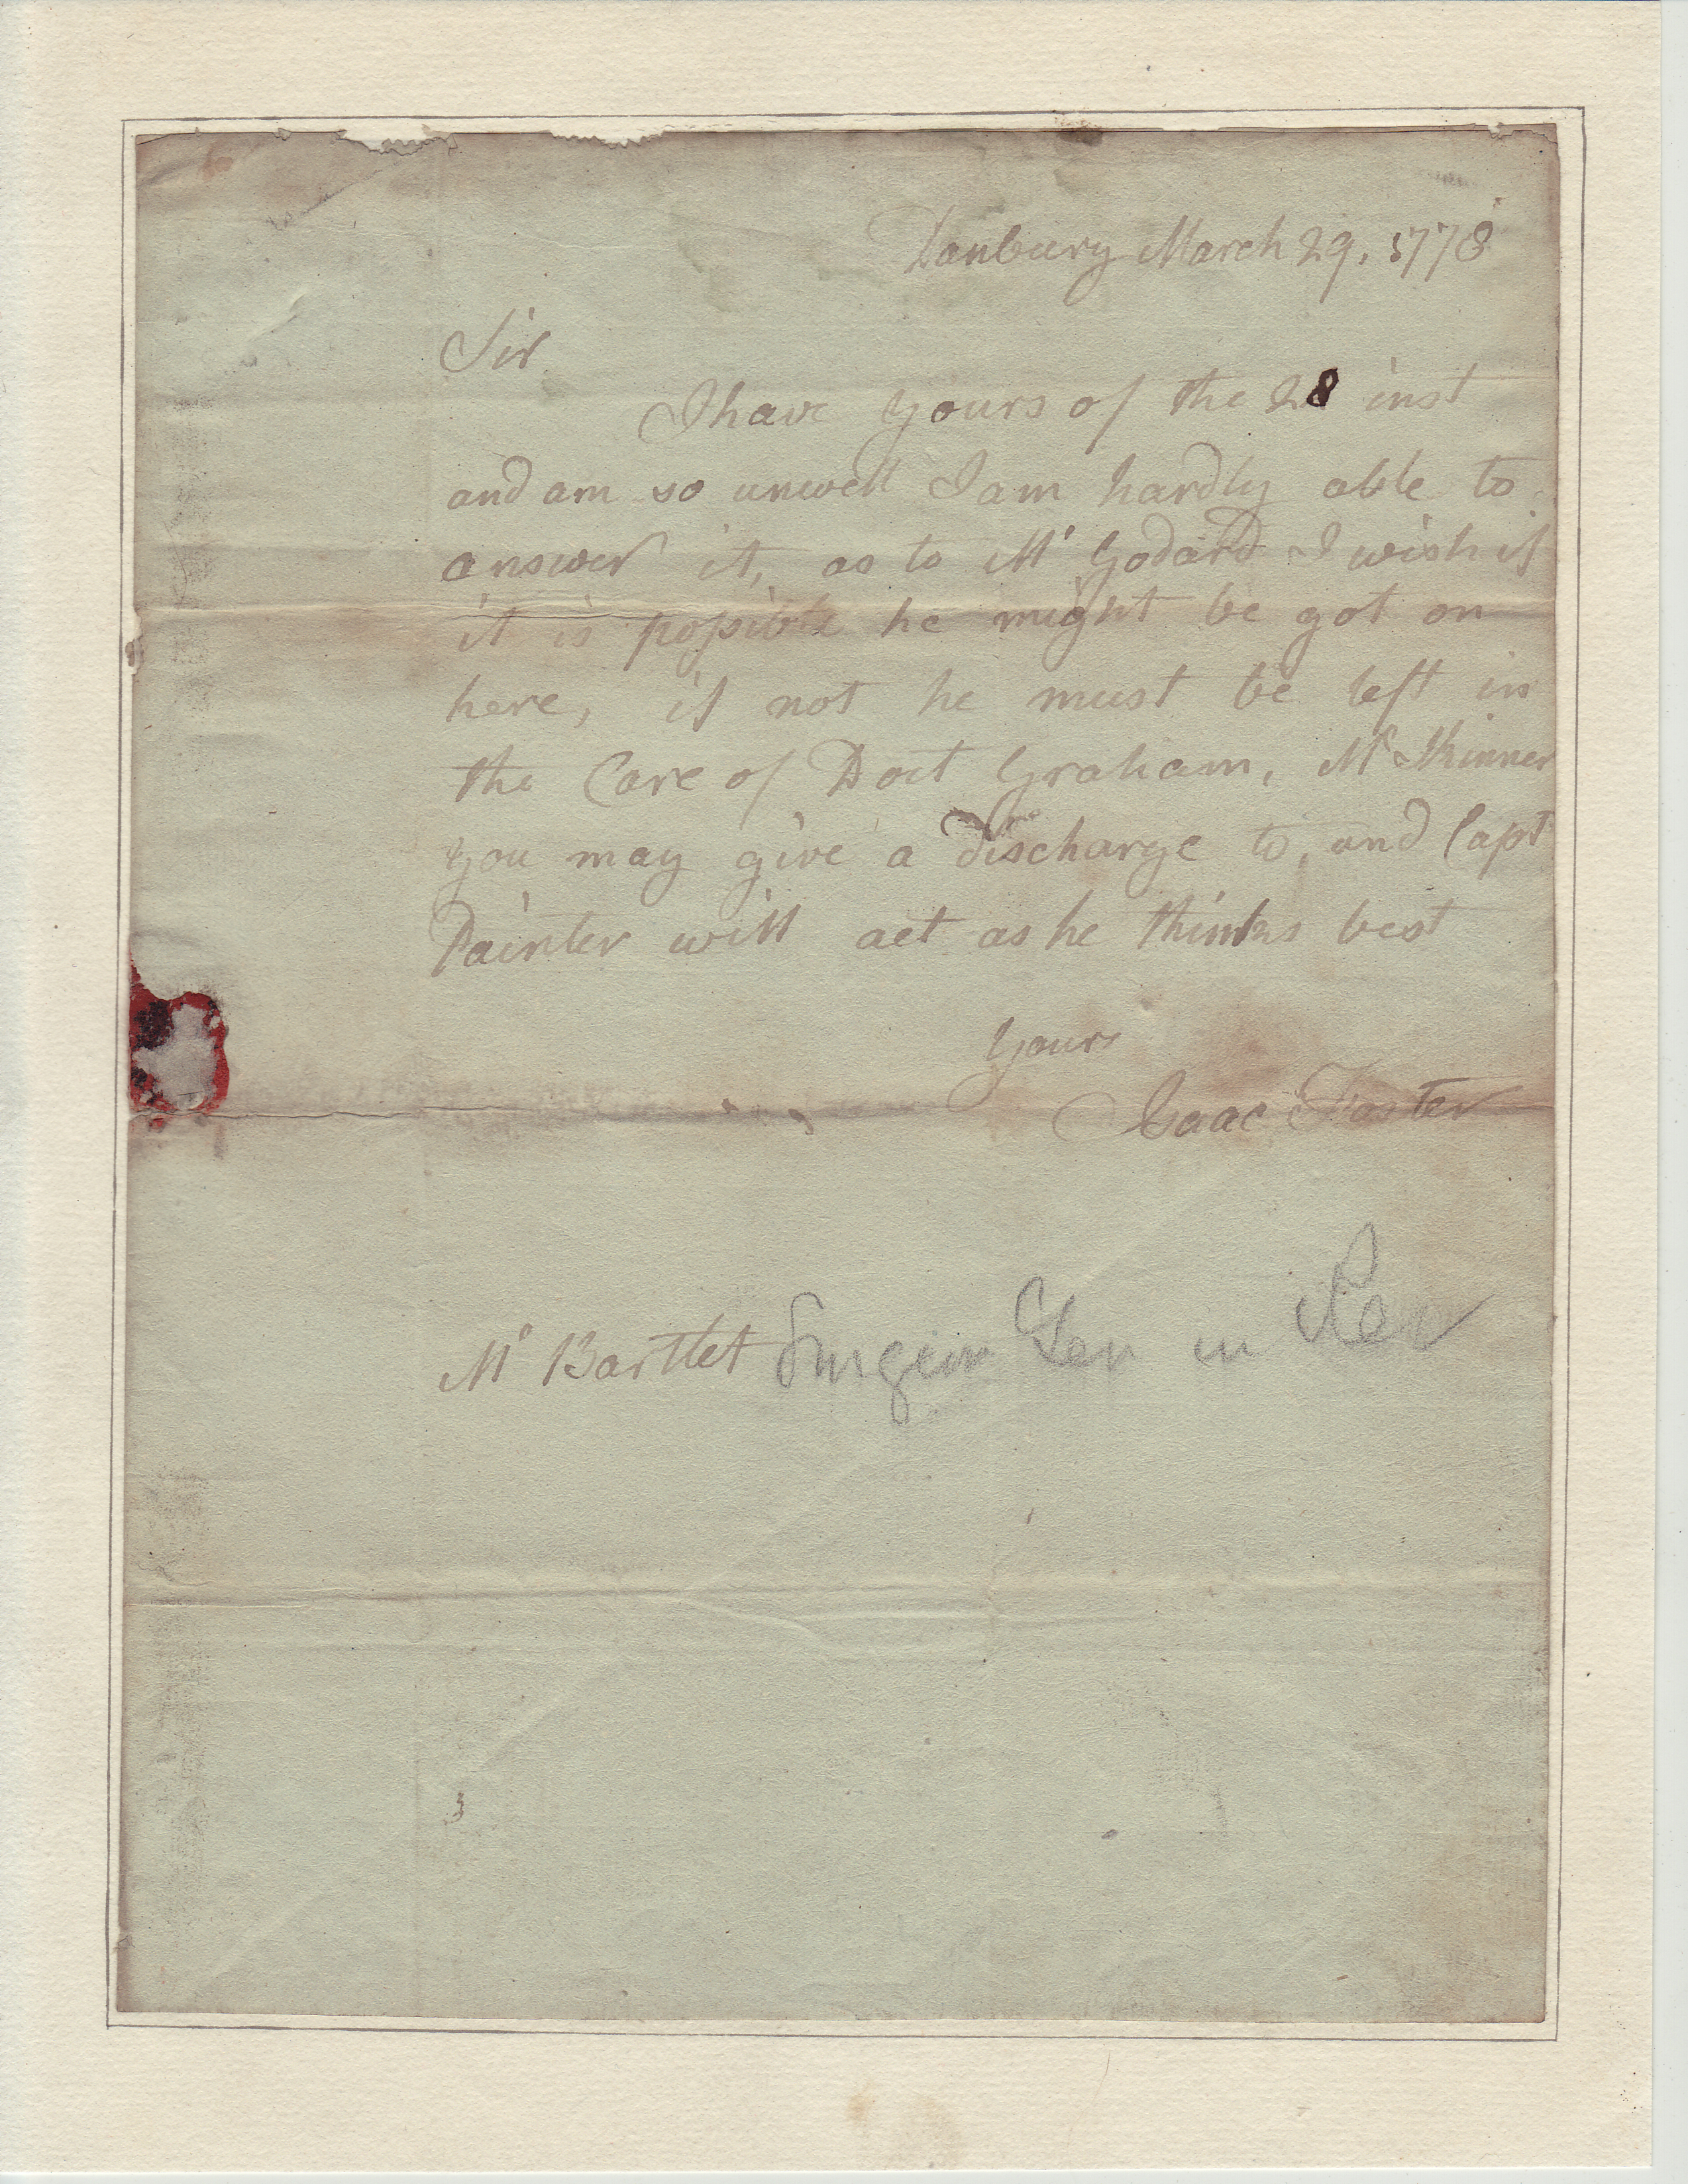 Danbury March 29, 1778
Sir
I have yours of the 28 inst
and am so unwell I am hardly able to
answer it, as to Mr Godard I wish if
it is possible he might be got on
here, if not he must be left in
the Care of Doct Graham, Mr Skinner
you may give a discharge to, and Capt
Painter will act as he thinks best
Yours
Isaac Foster
Mr Bartlet Surgeon Gen in Rev